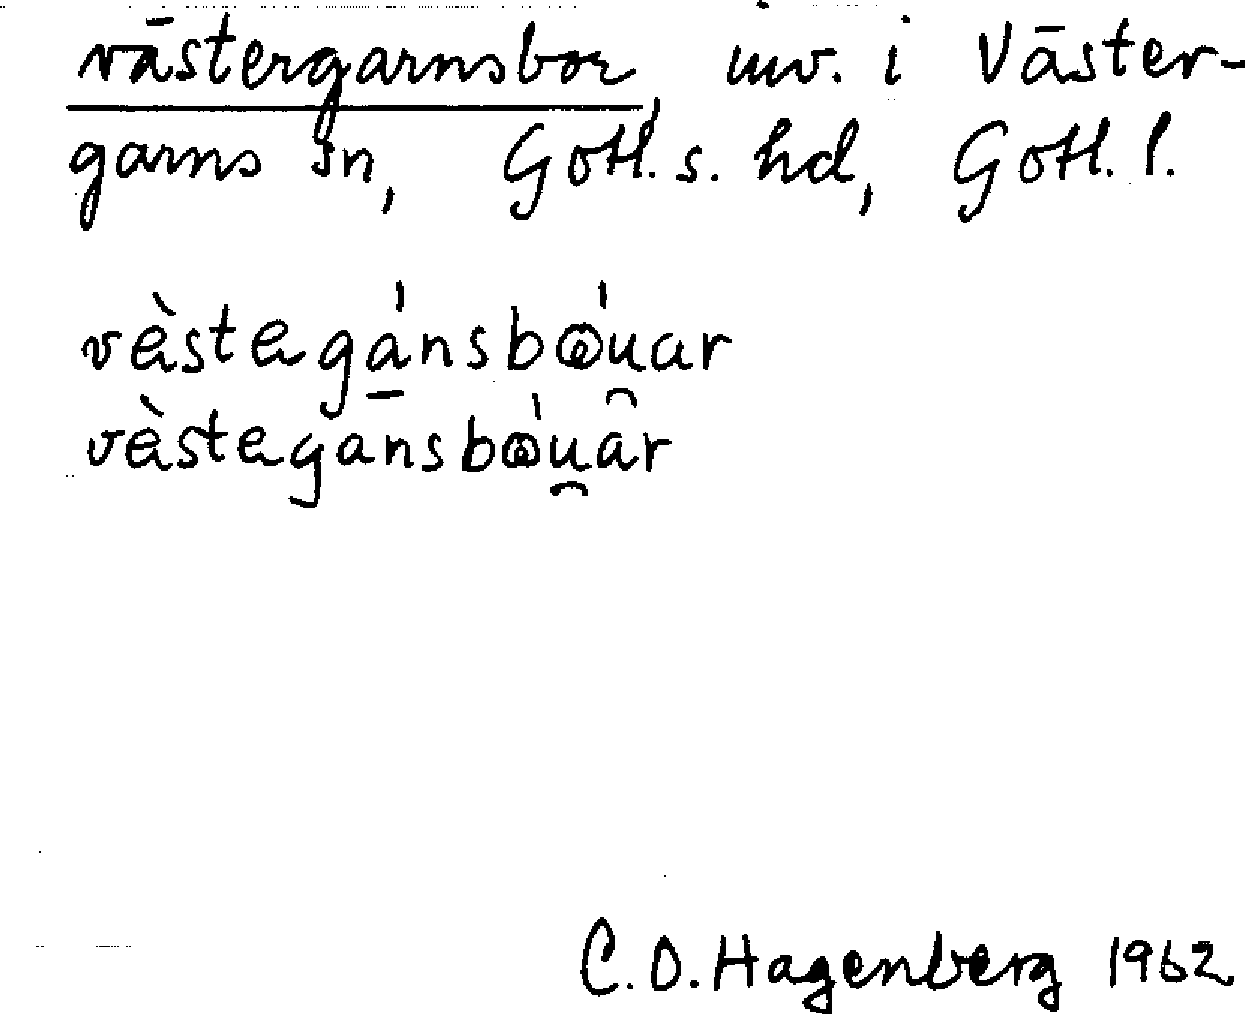 västergarnsbor, inv. i Väster-
garns sn, Gotl. s. hd, Gotl. l.
vèstegánsbῶuar
vèstegānsbῶuar
C.O. Hagenberg 1962